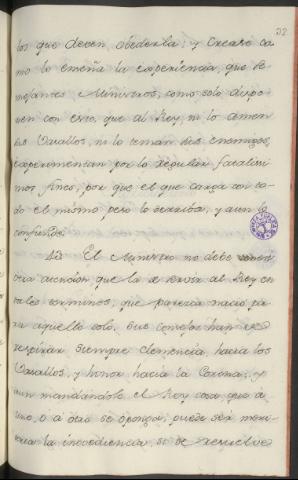 los que deven obedecerla; y crease co
mo lo enseña la experiencia, que se
mejantes Ministros, como solo dispo
nen con esto, que al Rey, ni lo amen
los Vasallos, ni lo teman sus enemigos,
experimentan por lo regular fatalissi
mos fines, por que el que carga con to
do el mismo peso lo derriba, y aun lo
confunde.
El Ministro no debe tener
otra atencion que la de servir al Rey en
tales terminos, que parezca nació pa
ra aquello solo. Sus consejos han de
respirar siempre clemencia, hacia los
Vasallos, y honor hacia la Corona; y
aun mandandole el Rey cosa que á
uno, ó á otro se oponga, puede ser meri
toria la inovediencia, si se resuelve